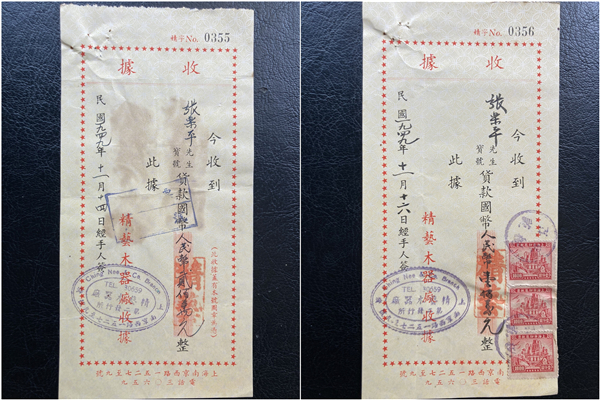 No. 0355
收據
今收到
張樂平 先生 寶號 貨款國幣人民幣貳佰萬元整
此據
精藝木器廠收據
民國一九四九年十一月十四日經手人簽
TEL. 30659
上海南京西路一五二七至九號
電話三〇六五九
No. 0356
收據
今收到
張樂平 先生 寶號 貨款國幣人民幣壹佰萬元整
此據
精藝木器廠收據
民國一九四九年十一月十六日經手人簽
TEL. 30659
上海南京西路一五二七至九號
電話三〇六五九